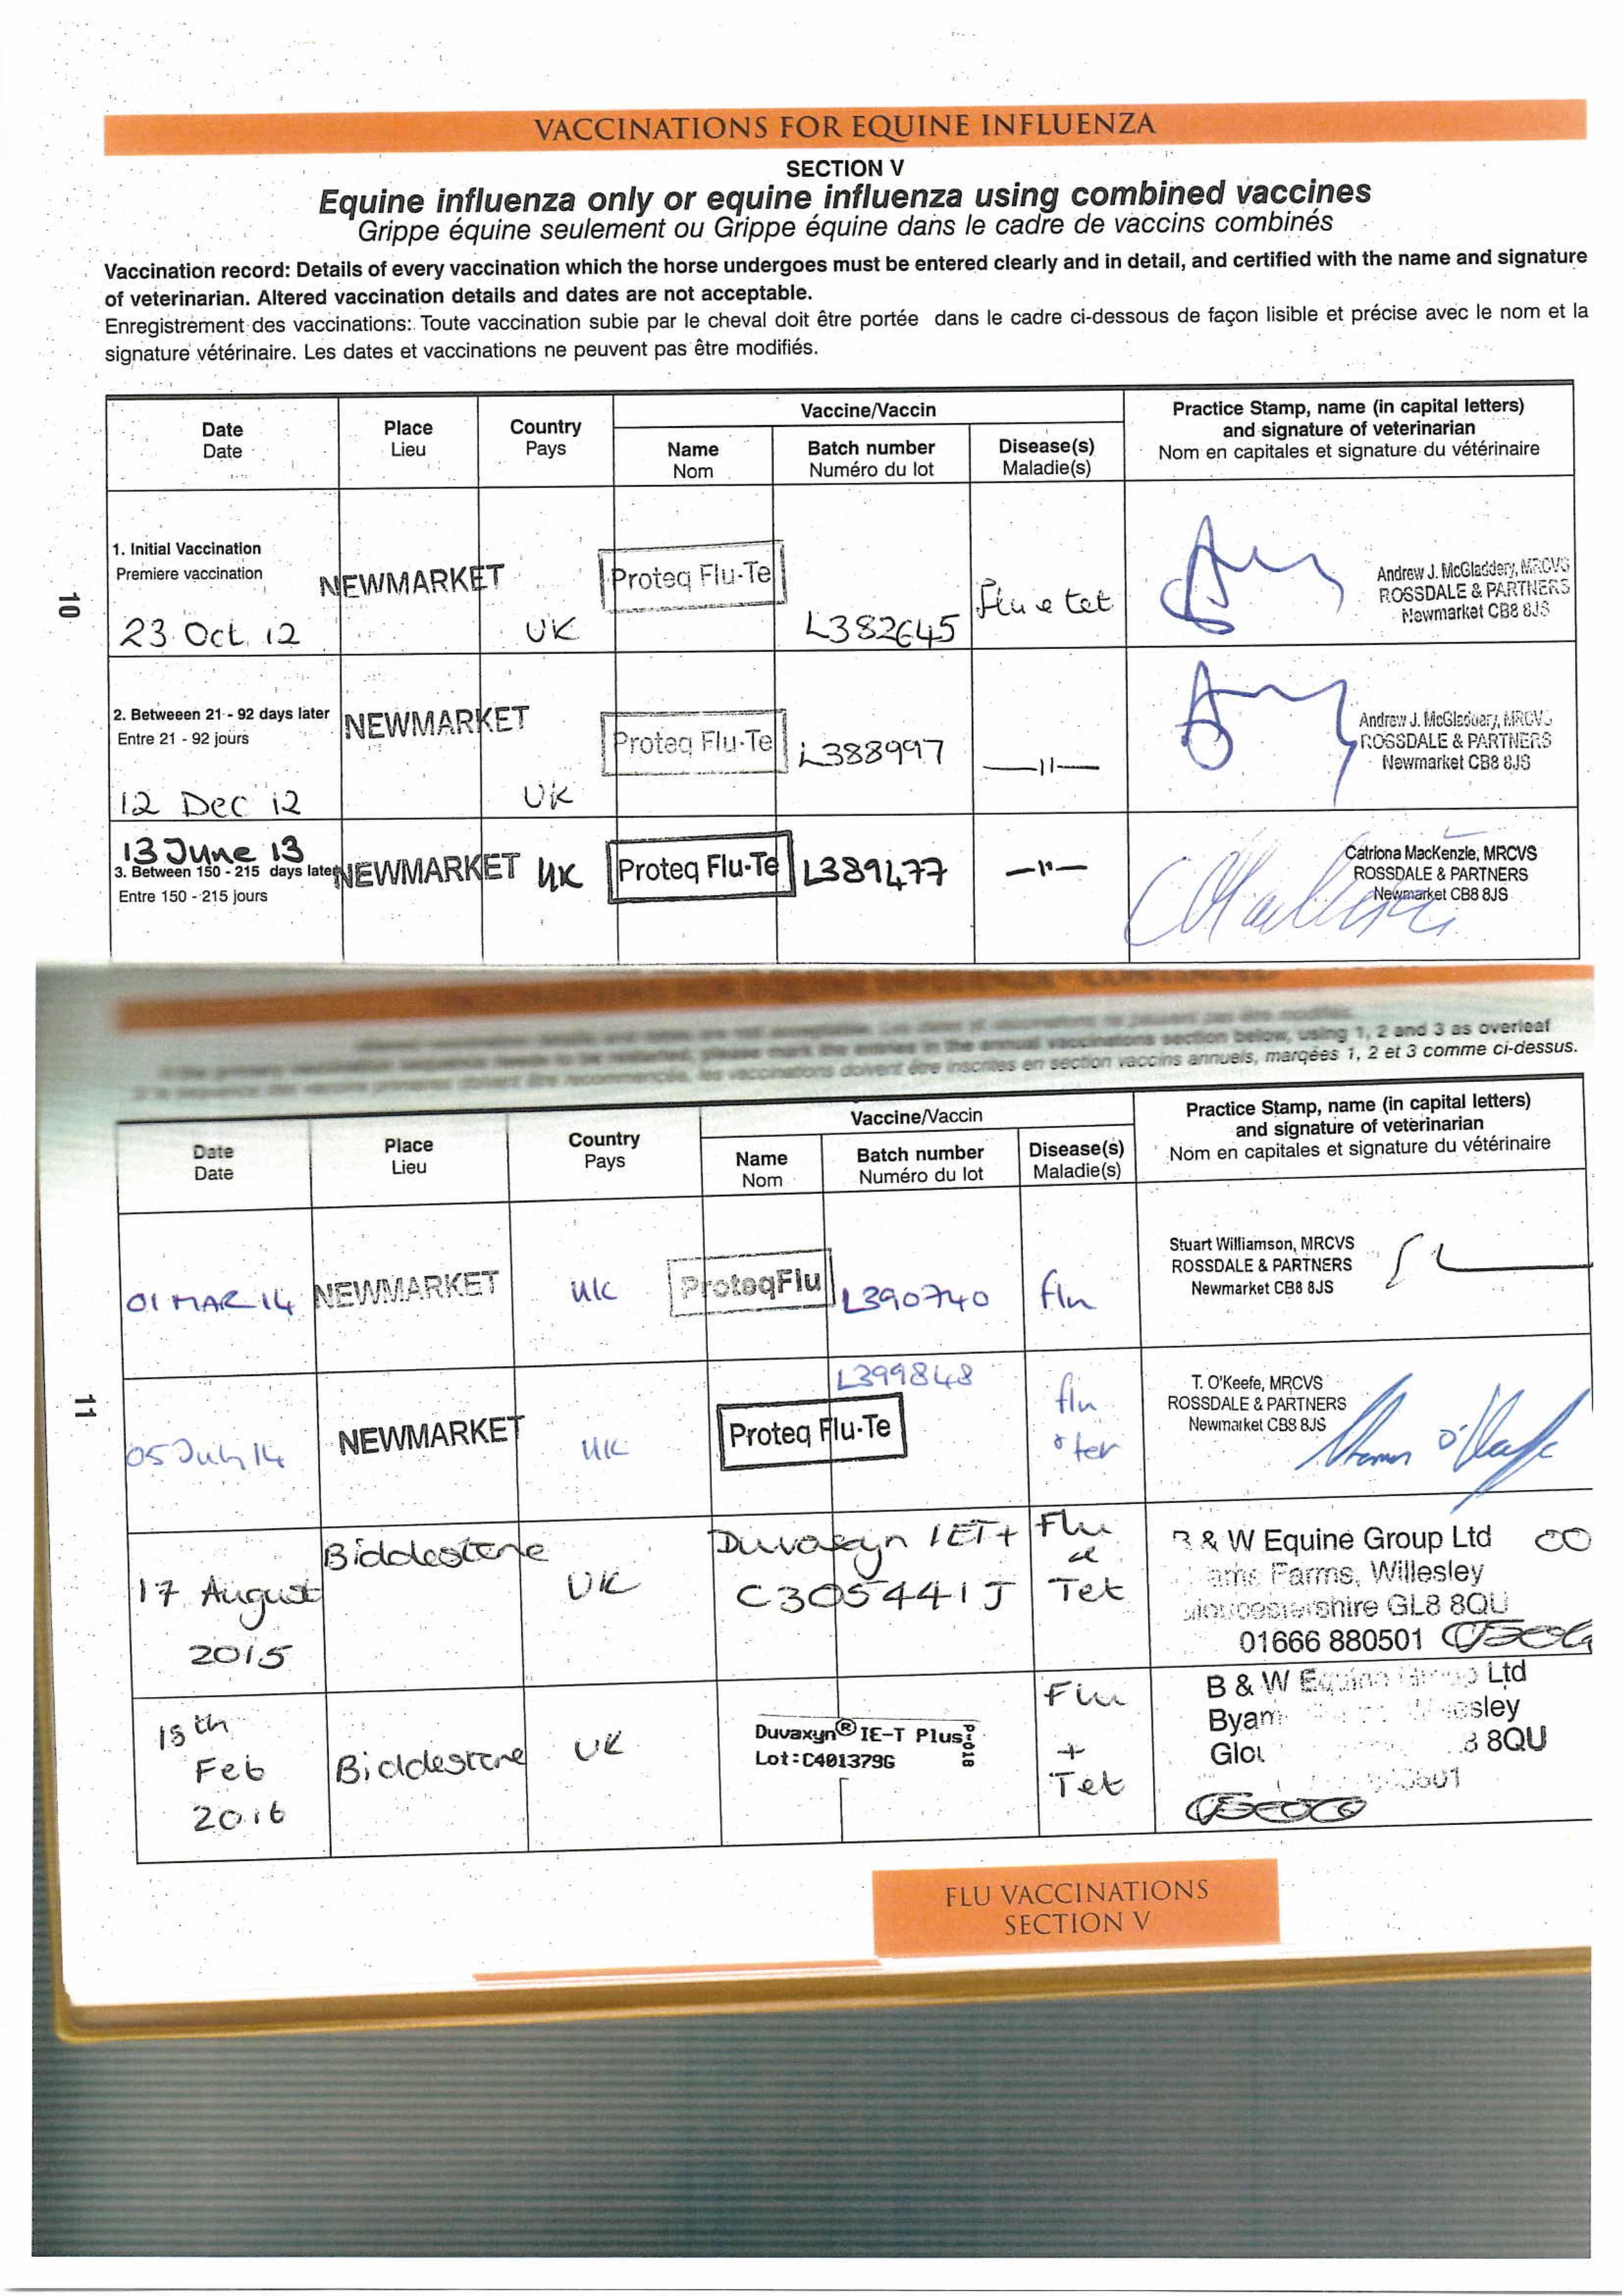 VACCINATIONS FOR EQUINE INFLUENZA
SECTION V
Equine influenza only or equine influenza using combined vaccines
Grippe équine seulement ou Grippe équine dans le cadre de vaccins combinés
Vaccination record: Details of every vaccination which the horse undergoes must be entered clearly and in detail, and certified with the name and signature
of veterinarian. Altered vaccination details and dates are not acceptable.
Enregistrement des vaccinations: Toute vaccination subie par le cheval doit être portée dans le cadre ci-dessous de façon lisible et précise avec le nom et la
signature vétérinaire. Les dates et vaccinations ne peuvent pas être modifiés.
Date
Date
Place
Lieu
Country
Pays
Vaccine/Vaccin
Name
Nom
Batch number
Numéro du lot
Disease(s)
Maladie(s)
Practice Stamp, name (in capital letters)
and signature of veterinarian
Nom en capitales et signature du vétérinaire
1. Initial Vaccination
Premiere vaccination
23 Oct 12
NEWMARKET
UK
Proteq Flu-Te
L382645
Flu e tet
Andrew J. McGladdery, MRCVS
ROSSDALE & PARTNERS
Newmarket CB8 8JS
10
2. Betweeen 21 - 92 days later
Entre 21 - 92 jours
12 Dec 12
NEWMARKET
UK
Proteq Flu-Te
L388997
—11—
Andrew J. McGladdery, MRCVS
ROSSDALE & PARTNERS
Newmarket CB8 8JS
13 June 13
3. Between 150 - 215 days later
Entre 150 - 215 jours
NEWMARKET
UK
Proteq Flu-Te
L389477
—"—
Catriona MacKenzie, MRCVS
ROSSDALE & PARTNERS
Newmarket CB8 8JS
below, using 1, 2 and 3 as overleaf
les vaccinations doivent être inscrites en section vaccins annuels, marqées 1, 2 et 3 comme ci-dessus.
Date
Date
Place
Lieu
Country
Pays
Vaccine/Vaccin
Name
Nom
Batch number
Numéro du lot
Disease(s)
Maladie(s)
Practice Stamp, name (in capital letters)
and signature of veterinarian
Nom en capitales et signature du vétérinaire
01 MAR 14
NEWMARKET
UK
ProteqFlu
L390740
flu
Stuart Williamson, MRCVS
ROSSDALE & PARTNERS
Newmarket CB8 8JS
11
05 July 14
NEWMARKET
UK
L399848
Proteq Flu-Te
flu
T. O'Keefe, MRCVS
ROSSDALE & PARTNERS
Newmarket CB8 8JS
17 August
2015
Biddestone
UK
Duvaxyn IET+
C305441J
Flu
&
Tet
B & W Equine Group Ltd
Farms, Willesley
Gloucestershire GL8 8QU
01666 880501
18th
Feb
2016
Biddestone
UK
Duvaxyn® IE-T Plus
Lot:C401379G
Flu
+
Tet
B & W Equine Group Ltd
8QU
FLU VACCINATIONS
SECTION V